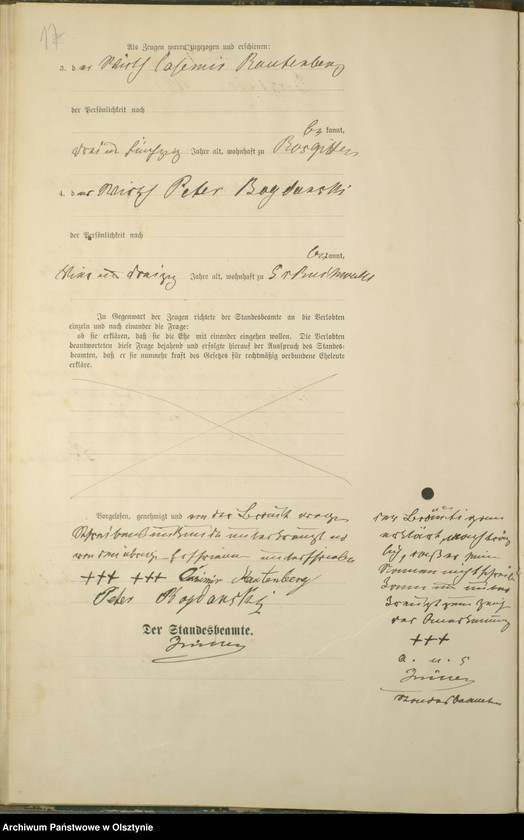 17
Als Zeugen waren zugezogen und erschienen:
3. der Wirth Casimir Rautenberg
der Persönlichkeit nach
bekannt,
drei und fünfzig Jahre alt, wohnhaft zu
4. der Wirth Peter Bogdanski
der Persönlichkeit nach
bekannt,
und dreißig Jahre alt, wohnhaft zu
In Gegenwart der Zeugen richtete der Standesbeamte an die Verlobten
einzeln und nach einander die Frage:
ob sie erklären, daß sie die Ehe mit einander eingehen wollen. Die Verlobten
beantworteten diese Frage bejahend und erfolgte hierauf der Ausspruch des Standes-
beamten, daß er sie nunmehr kraft des Gesetzes für rechtmäßig verbundene Eheleute
erkläre.
Vorgelesen, genehmigt und von der Braut wegen
Schreibensunkunde unterkreuzt und
von den übrigen Erschienenen unterschrieben
+++ +++ Casimir Rautenberg
Peter Bogdanski
Der Standesbeamte.
der Bräutigam
erklärt, nachträg
lich, daß er seinen
Namen nicht schreiben
kann und unter
kreuzt zum Zeichen
der Anerkennung
+++
a. u. s
Standesbeamte
Archiwum Państwowe w Olsztynie